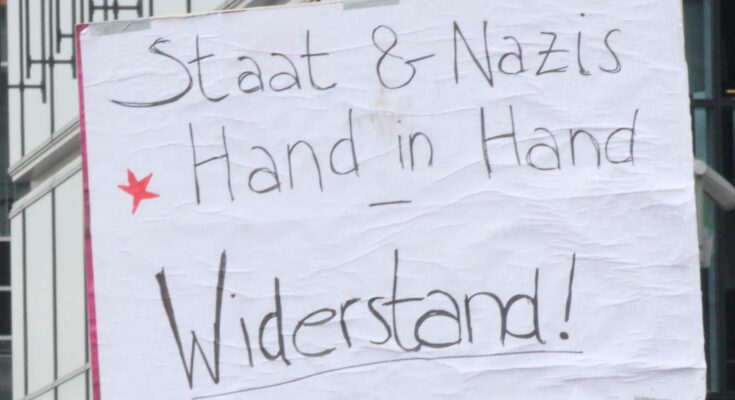 Staat & Nazis
Hand in Hand
–
Widerstand!